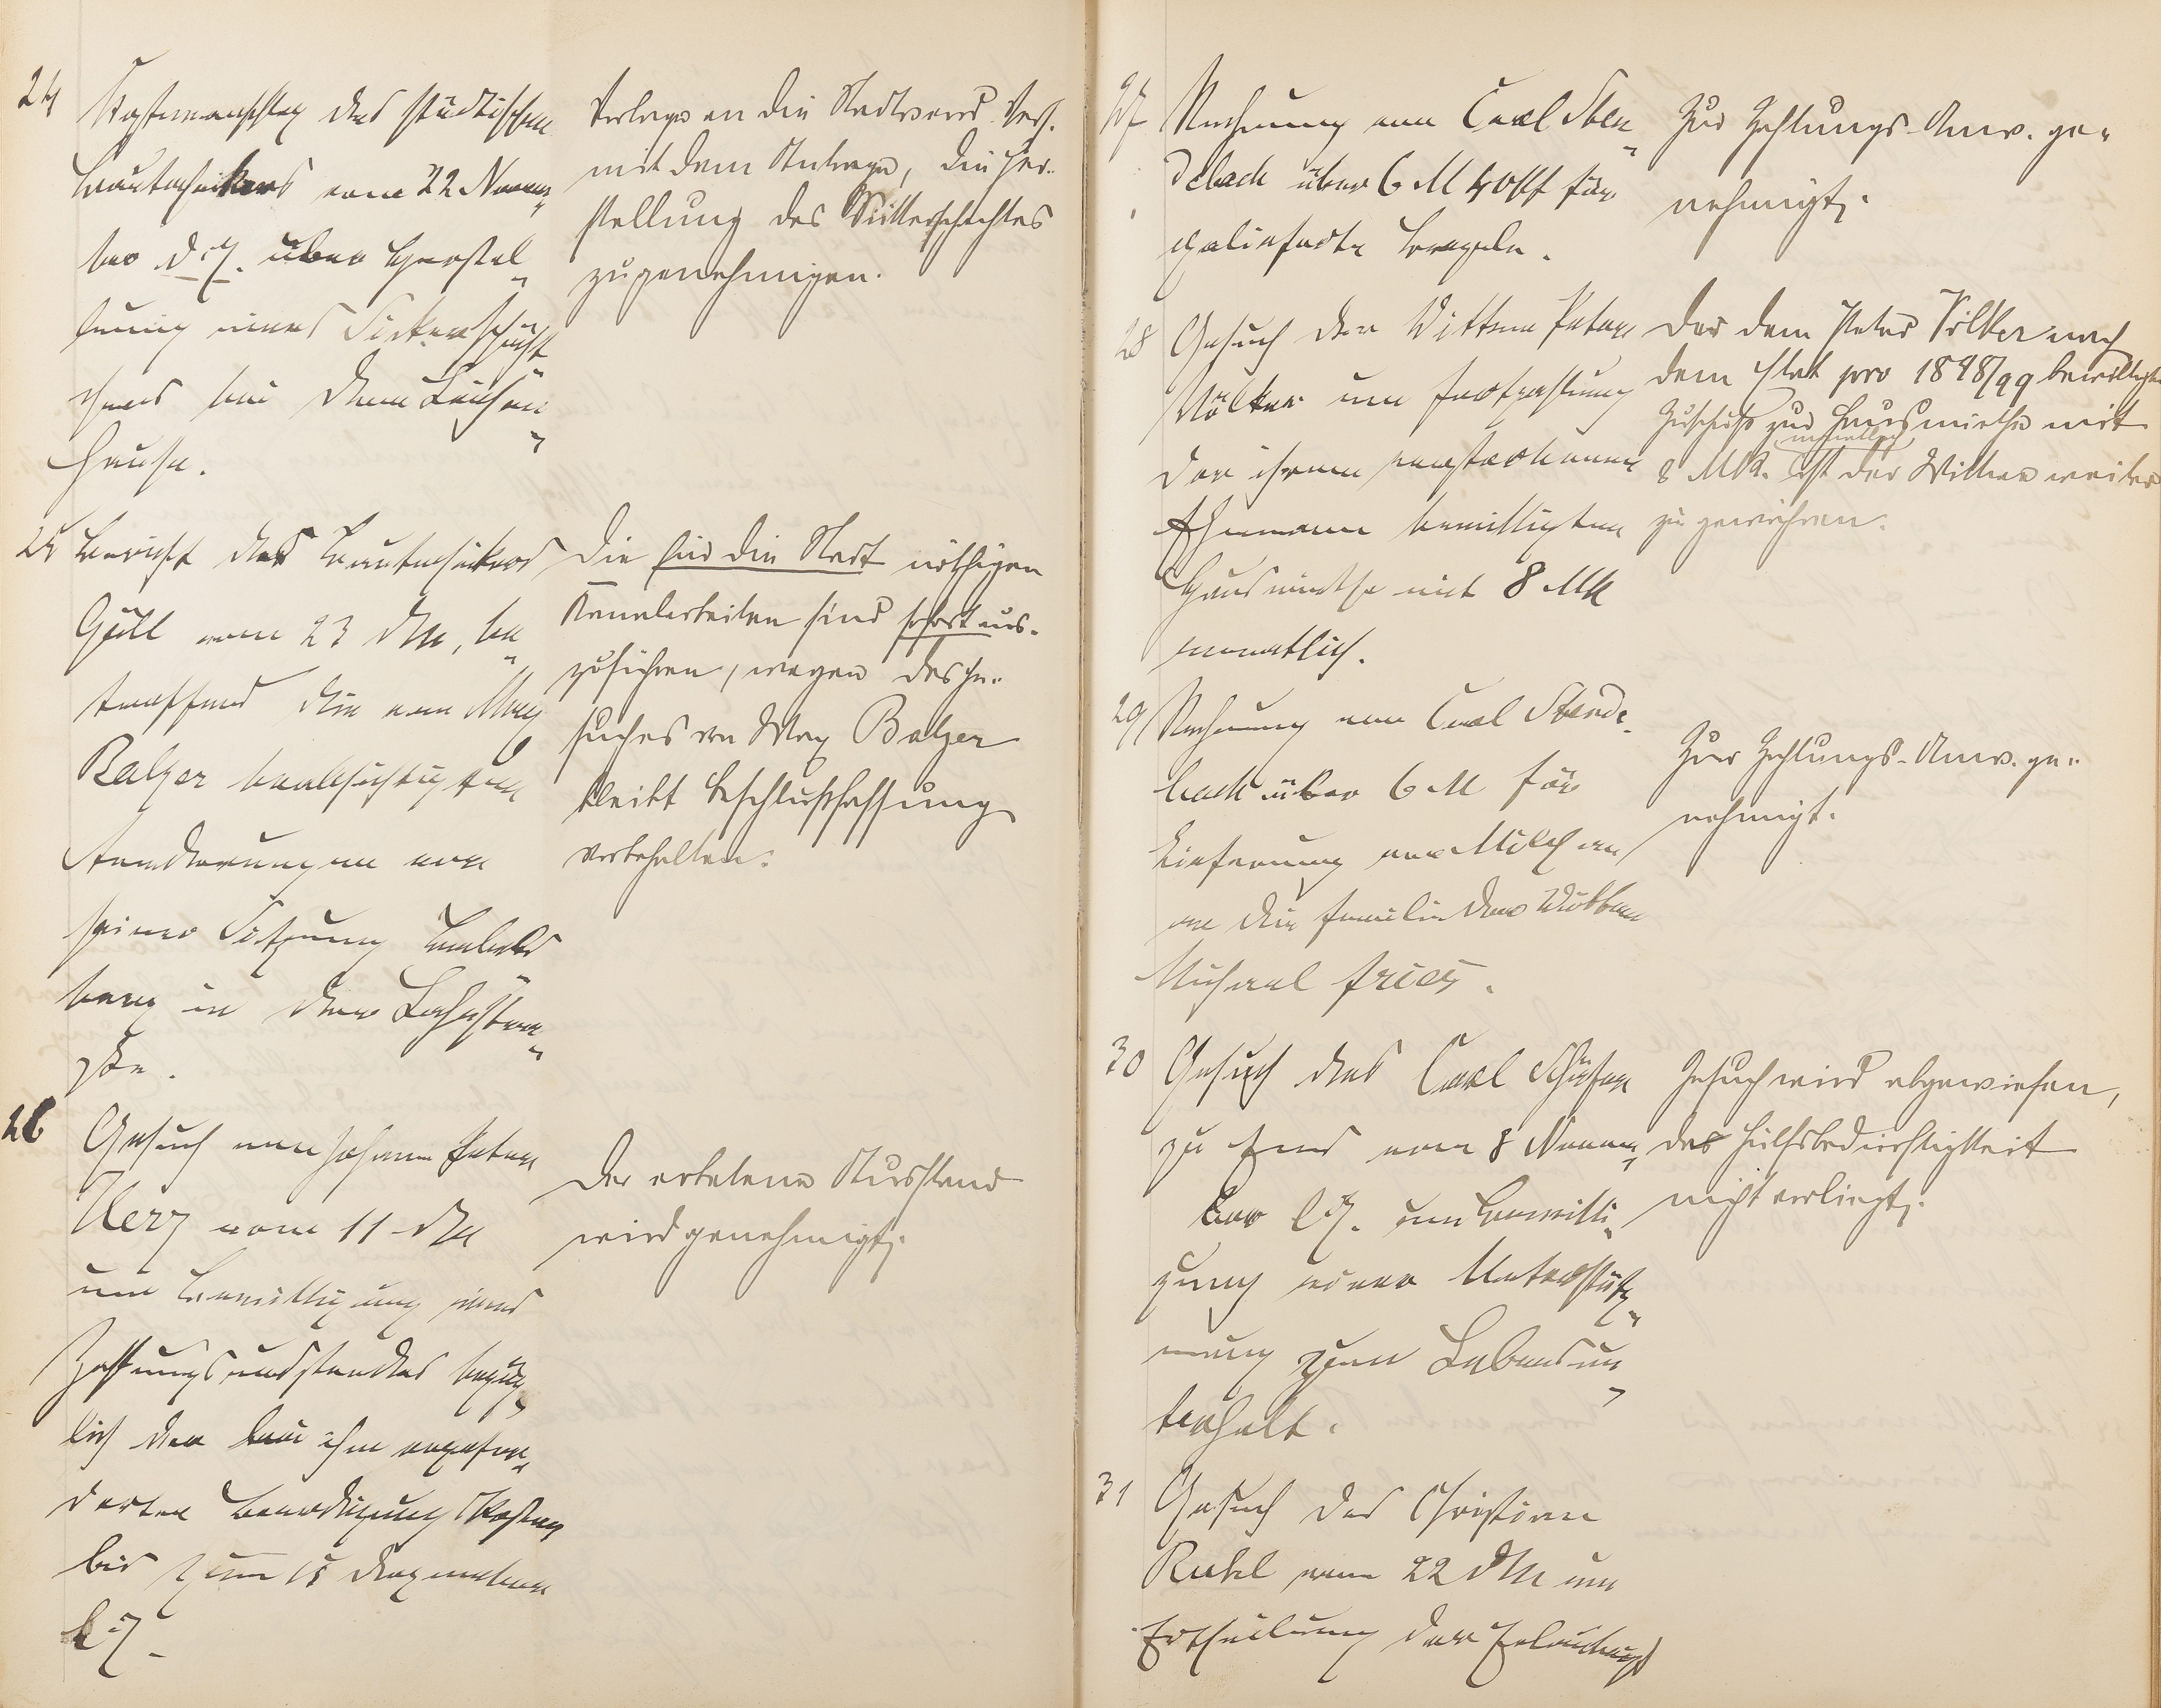 24
Kostenanschlag des städtischen
Bautechnikers vom 22 Novem„
ber d. J. über Herstel„
lung eines Sickerschäch„
chens bei dem Leichen„
hause.
Vorlage an die Stadtverord. Vers.
mit dem Antrage, die Her-
stellung des Sickerschachtes
zu genehmigen.
25 Bericht des Bautechnikers
Güll vom 23 d Mts, be„
treffend die von May
Balzer beabsichtigten
Aenderungen von
seiner Besitzung
in der Lahnstra„
ße.
Die für die Stadt nöthigen
Kanalarbeiten sind sofort aus-
zuführen, wegen des Ge-
suches von May Balzer
bleibt Beschlußfassung
vorbehalten.
26
Gesuch von Johann Peter
vom 11 d Mts
um Bewilligung eines
Zahlungsausstandes bezüg„
lich der bei ihm angefor„
derten Beerdigungskosten
bis zum 15 Dezember
l. J.
Der erbetene Ausstand
wird genehmigt.
27
Rechnung von Carl Sten„
debach über 6 M 40 Pf für
gelieferte
Zur Zahlungs-Anw. ge-
nehmigt.
28
Gesuch der Wittwe Peter
Völker um Fortzahlung
der ihrem verstorbenen
Ehemann bewilligten
Hausmiethe mit 8 Mk
monatlich.
Der dem Peter Völker nach
dem Etat pro 1898/99 bewilligte
Zuschuß zur Hausmiethe mit
8 Mk. monatlich ist der Wittwe weiter
zu gewähren.
29
Rechnung von Carl Stende-
bach über 6 M für
Lieferung von Milch an
an die Familie der Wittwe
Michael Fries.
Zur Zahlungs-Anw. ge-
nehmigt.
30
Gesuch des Carl Schäfer
zu Ems vom 8 Novem„
ber l. J. um Bewilli„
gung einer Unterstütz„
ung zum Lebensun„
terhalt.
Gesuch wird abgewiesen,
da Hülfsbedürftigkeit
nicht vorliegt.
31
Gesuch des Christian
Ruhl vom 22 d Mts um
Ertheilung der Erlaubniß